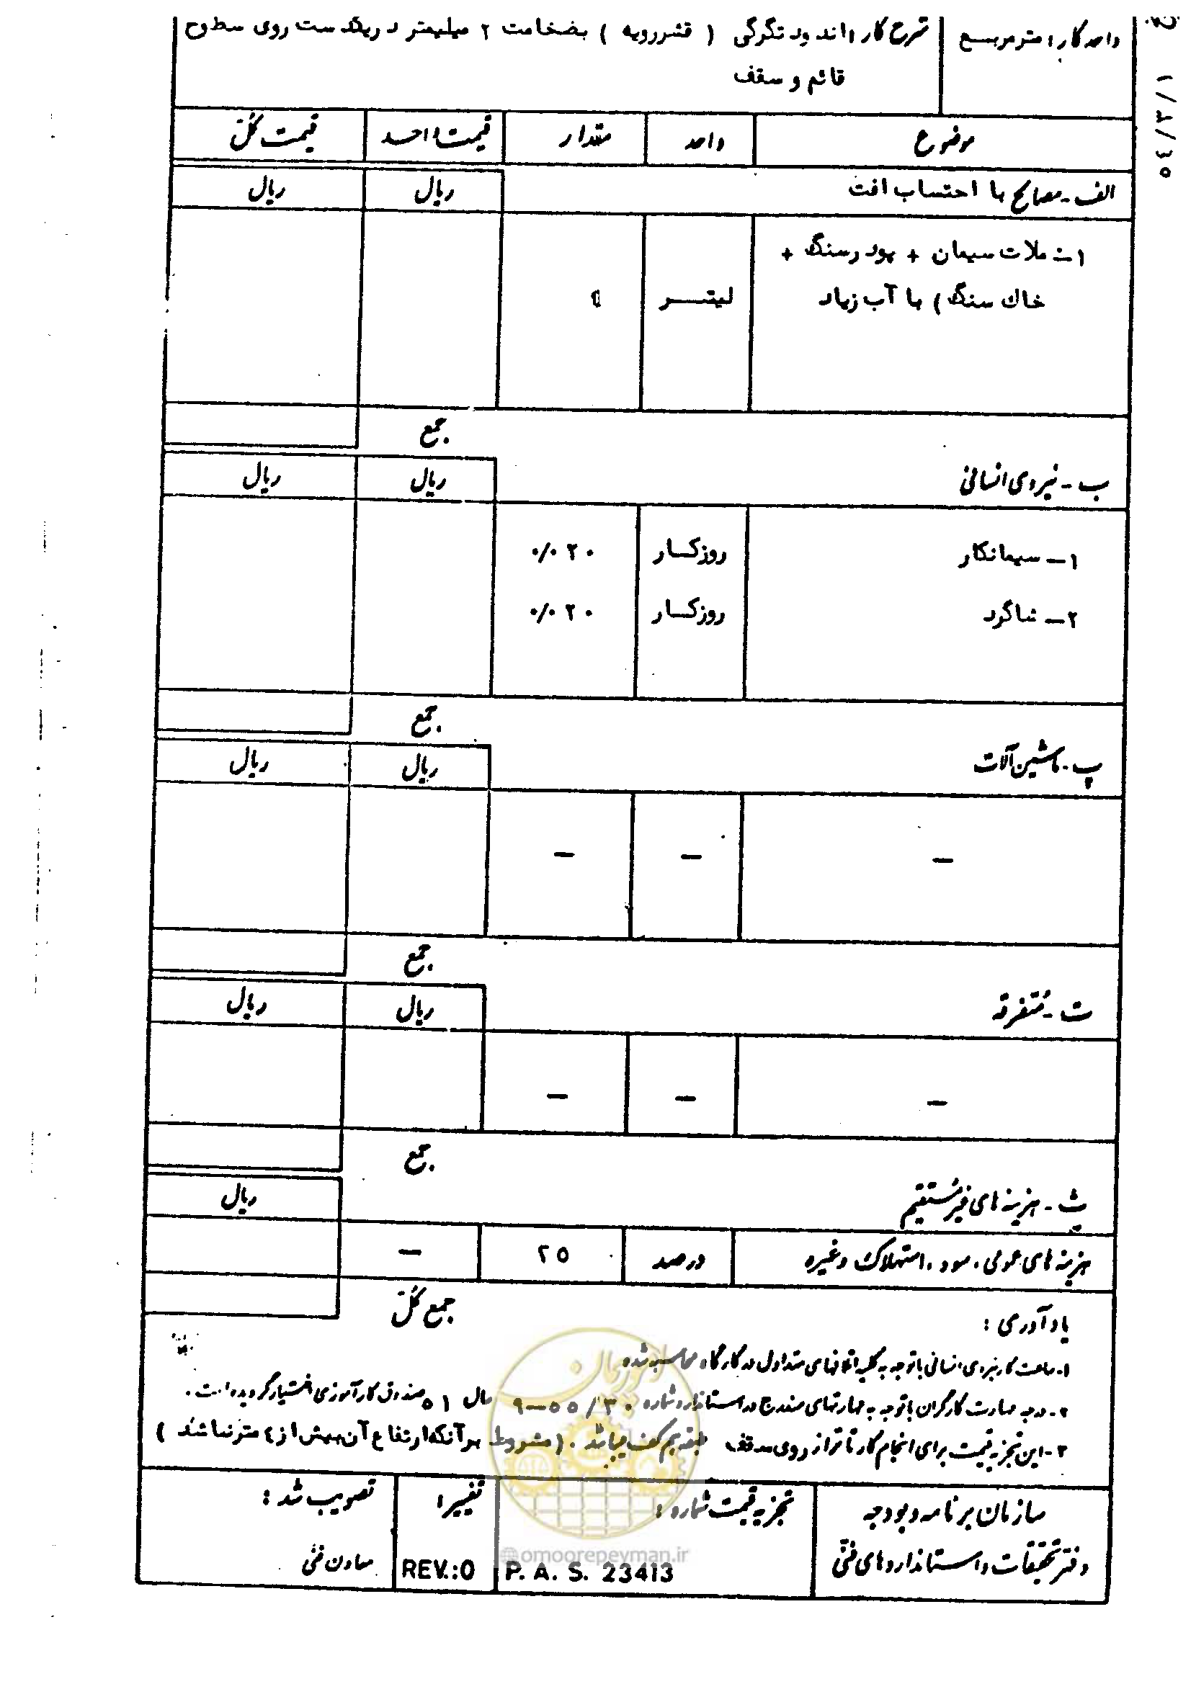 واحد کار : متر مربع
شرح کار : اندود تگرگی ( قشررویه ) بضخامت ۲ میلیمتر در یکدست روی سطوح
قائم و سقف
۱/۳/۴۵
موضوع واحد مقدار قیمت واحد قیمت کل
الف - مصالح با احتساب افت ریال ریال
۱ - ملات سیمان + پودر سنگ +
خاک سنگ ) با آب زیاد لیتر
جمع
ب - نیروی انسانی ریال ریال
۱ - سیمانکار روزکار ۰/۰۲۰
۲ - شاگرد روزکار ۰/۰۲۰
جمع
پ - ماشین آلات ریال ریال
- - -
جمع
ت - متفرقه ریال ریال
- - -
جمع
ث - هزینه های غیرمستقیم ریال
هزینه های عمومی ، سود ، استهلاک وغیره درصد ۲۵ -
جمع کل
یادآوری :
۱- ساعت کار نیروی انسانی با توجه به کلیه اتفاقهای متداول در کارگاه محاسبه شده
۲- درجه مهارت کارگران با توجه به مهارتهای مندرج در استاندارد شماره ۳۰/۵۵-۹ سال ۵۱ صندوق کارآموزی اختیار گردیده است .
۳- این تجزیه قیمت برای انجام کار تا تراز روی سقف طبقه هم کف میباشد . ( مشروط بر آنکه ارتفاع آن بیش از ٤ متر نباشد )
سازمان برنامه و بودجه
دفتر تحقیقات و استانداردهای فنی
تجزیه قیمت شماره :
P. A. S. 23413
تغییر :
REV.:0
تصویب شد :
معاون فنی
امور پیمان
@omoorepeyman.ir